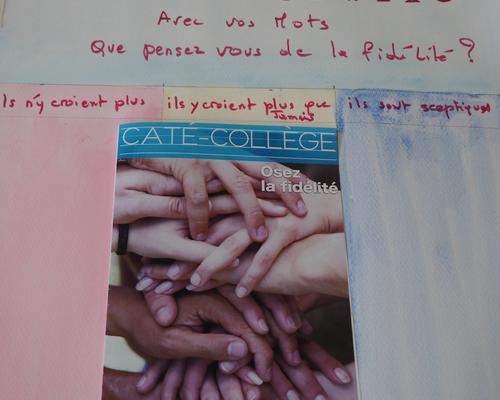 Avec vos Mots
Que pensez vous de la fidélité ?
Ils n'y croient plus
ils y croient plus que
Jamais
ils sont sceptiques
CATÉ-COLLÈGE
Osez
la fidélité